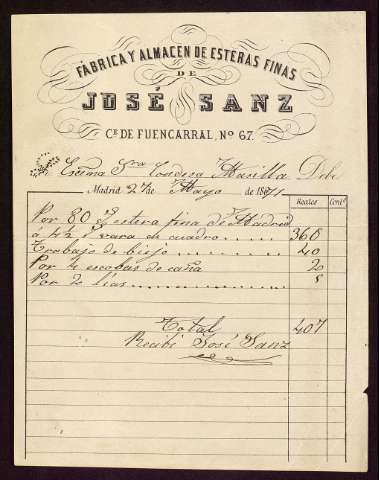 FÁBRICA Y ALMACEN DE ESTERAS FINAS
DE
JOSÉ SANZ
Cᴱ DE FUENCARRAL, Nº 67.
Exema Sra Condesa Debe
Madrid 27 de Mayo de 1871
Reales Centˢ
Por 80 estera fina de Madrid
a 4½ vara en cuadro 360
Trabajo de biejo 40
Por 2 escobas de caña 2
Por 2 lias 5
Total 407
Recibi José Sanz